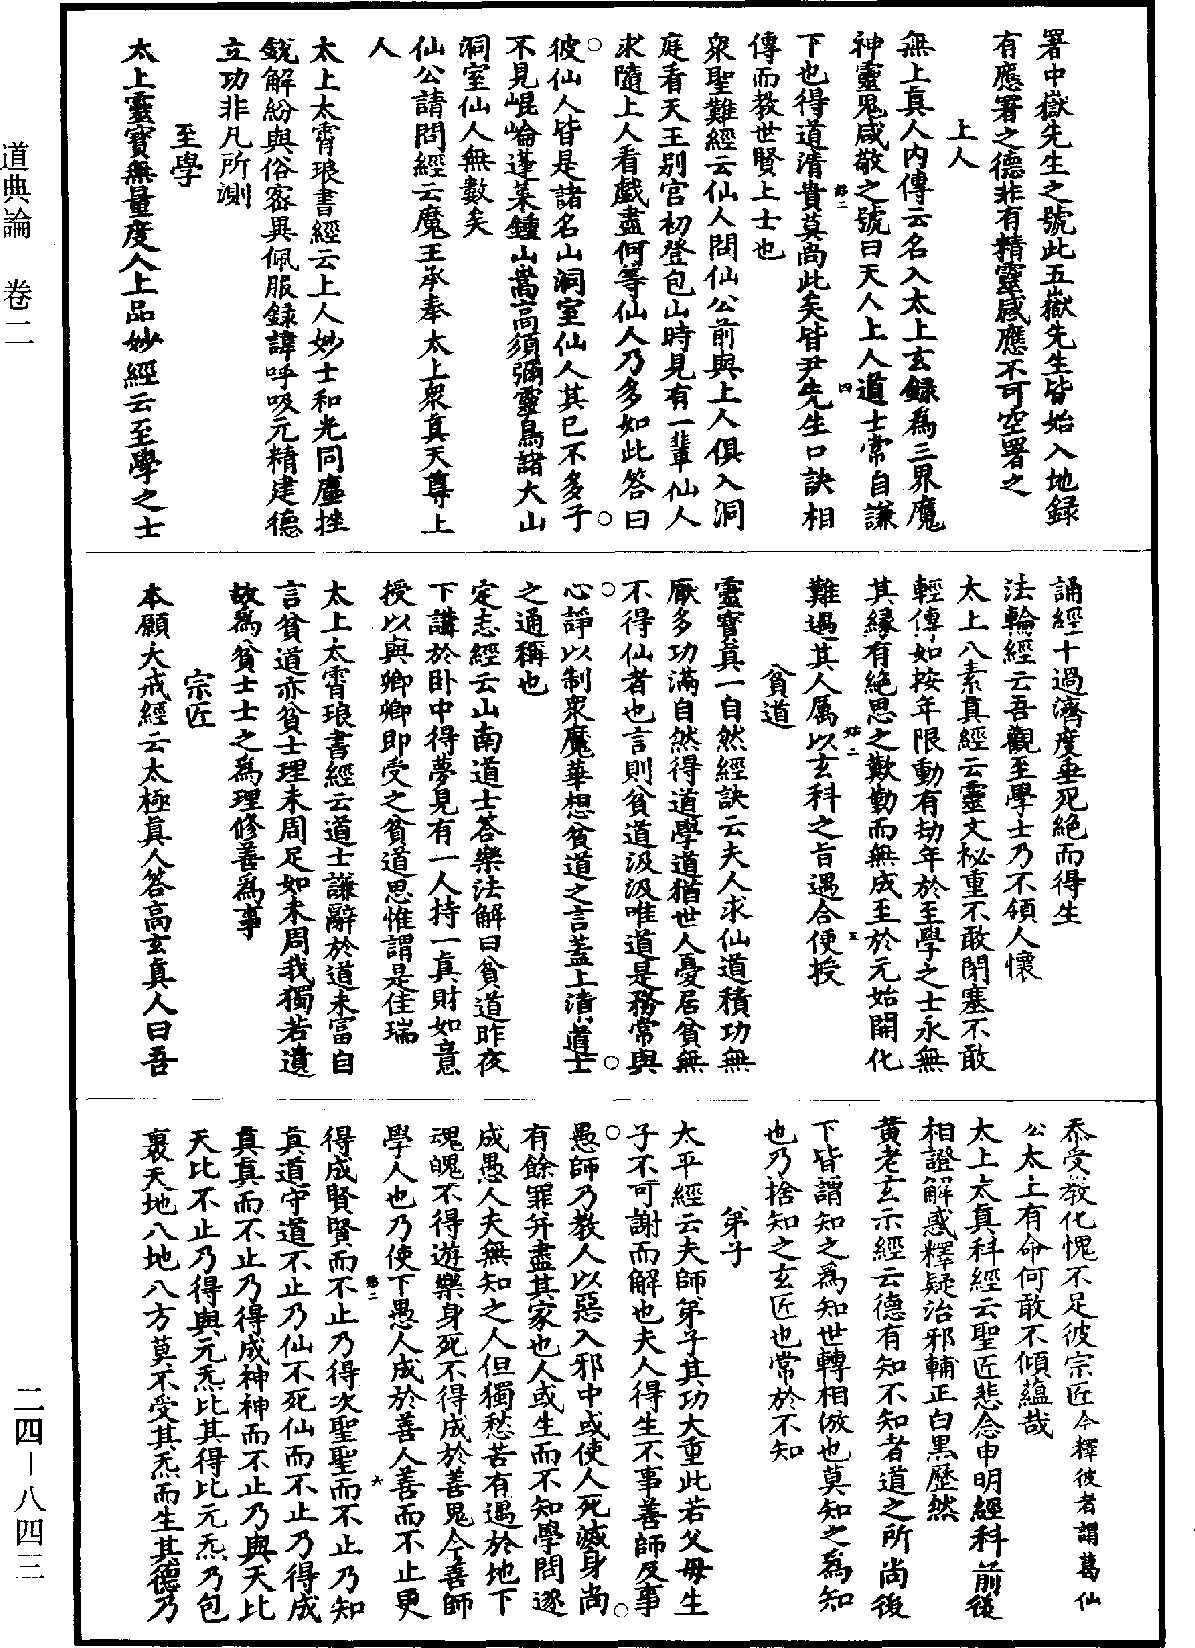 署中嶽先生之號此五嶽先生皆始入地録
有應署之德非有精靈感應不可空署之
上人
無上真人內傳云名入太上玄録為三界魔
神靈鬼咸敬之號曰天人上人道士常自謙
下也得道清貴莫尚此矣皆尹先生口訣相
傳而教世賢上士也
衆聖難經云仙人問仙公前與上人俱入洞
庭看天王别官初登包山時見有一輩仙人
求隨上人看戲盡何等仙人乃多如此答曰
彼仙人皆是諸名山洞室仙人其已不多子
不見崐崘蓬萊鍾山嵩高須彌靈鳥諸大山
洞室仙人無數矣
仙公請問經云魔王承奉太上衆真天尊上
人
太上太霄琅書經云上人妙士和光同塵挫
銳解紛與俗宻異佩服録諱呼吸元精建德
立功非凡所測
至學
太上靈寳無量度人上品妙經云至學之士
誦經十過濟度垂死絶而得生
法輪經云吾觀至學士乃不領人懷
太上八素真經云靈文秘重不敢閉塞不敢
輕傳如按年限動有劫年於至學之士永無
其縁有絶思之歎勤而無成至於元始開化
難遇其人属以玄科之旨遇合便授
貧道
靈寳真一自然經訣云夫人求仙道積功無
厭多功滿自然得道學道猶世人憂居貧無
不得仙者也言則貧道汲汲唯道是務常與
心諍以制衆魔華想貧道之言盖上清道士
之通稱也
定志經云山南道士荅樂法解曰貧道昨夜
下講於卧中得夢見有一人持一真財如意
授以與卿卿即受之貧道思惟謂是佳瑞
太上太霄琅書經云道士謙辭於道未富自
言貧道亦貧士理未周足如未周我獨若遺
故為貧士士之為理修善為事
宗匠
本願大戒經云太極真人答高玄真人曰吾
忝受教化愧不足彼宗匠今釋彼者謂葛仙
公太上有命何敢不傾蘊哉
太上太真科經云聖匠悲念申明經科前後
相證解惑釋疑治邪輔正白黒歷然
黄老玄示經云德有知不知者道之所尚後
下皆謂知之為知世轉相倣也莫知之為知
也乃捨知之玄匠也常於不知
弟子
太平經云夫師弟子其功大重此若父母生
子不可謝而解也夫人得生不事善師反事
愚師乃教人以惡入邪中或使人死滅身尚
有餘罪并盡其家也人或生而不知學問遂
成愚人夫無知之人但獨愁苦有過於地下
魂魄不得遊樂身死不得成於善鬼今善師
學人也乃使下愚人成於善人善而不止更
得成賢賢而不止乃得次聖聖而不止乃知
真道守道不止乃仙不死仙而不止乃得成
真真而不止乃得成神神而不止乃與天比
天比不止乃得與元炁比其得比元炁乃包
裹天地八地八方莫不受其炁而生其德乃
道典論　卷二
二四－八四三